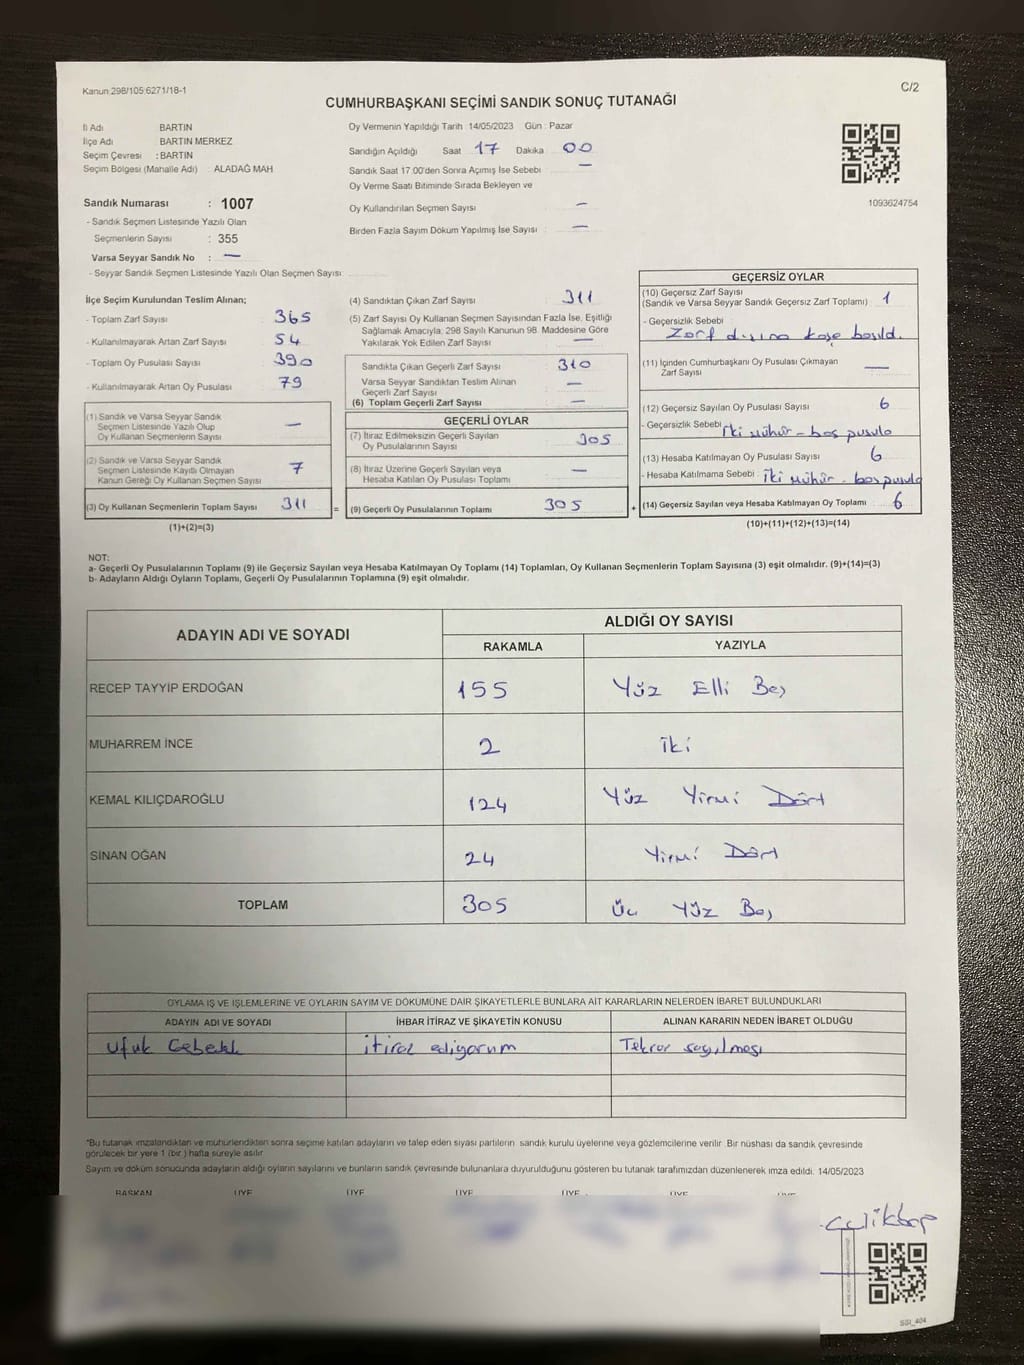 Kanun:298/105:6271/18-1
C/2
CUMHURBAŞKANI SEÇİMİ SANDIK SONUÇ TUTANAĞI
İl Adı BARTIN
İlçe Adı BARTIN MERKEZ
Seçim Çevresi : BARTIN
Seçim Bölgesi (Mahalle Adı) : ALADAĞ MAH
Oy Vermenin Yapıldığı Tarih : 14/05/2023 Gün : Pazar
Sandığın Açıldığı Saat 17 Dakika 00
Sandık Saat 17.00'den Sonra Açımış İse Sebebi —
Oy Verme Saati Bitiminde Sırada Bekleyen ve
Oy Kullandırılan Seçmen Sayısı —
Birden Fazla Sayım Döküm Yapılmış İse Sayısı —
1093624754
Sandık Numarası : 1007
- Sandık Seçmen Listesinde Yazılı Olan
Seçmenlerin Sayısı : 355
Varsa Seyyar Sandık No : —
- Seyyar Sandık Seçmen Listesinde Yazılı Olan Seçmen Sayısı
İlçe Seçim Kurulundan Teslim Alınan;
- Toplam Zarf Sayısı 365
- Kullanılmayarak Artan Zarf Sayısı 54
- Toplam Oy Pusulası Sayısı 390
- Kullanılmayarak Artan Oy Pusulası 79
(1) Sandık ve Varsa Seyyar Sandık
Seçmen Listesinde Yazılı Olup
Oy Kullanan Seçmenlerin Sayısı —
(2) Sandık ve Varsa Seyyar Sandık
Seçmen Listesinde Kayıtlı Olmayan
Kanun Gereği Oy Kullanan Seçmen Sayısı 7
(3) Oy Kullanan Seçmenlerin Toplam Sayısı 311 =
(1)+(2)=(3)
(4) Sandıktan Çıkan Zarf Sayısı 311
(5) Zarf Sayısı Oy Kullanan Seçmen Sayısından Fazla İse, Eşitliği
Sağlamak Amacıyla; 298 Sayılı Kanunun 98. Maddesine Göre
Yakılarak Yok Edilen Zarf Sayısı —
Sandıkta Çıkan Geçerli Zarf Sayısı 310
Varsa Seyyar Sandıktan Teslim Alınan
Geçerli Zarf Sayısı —
(6) Toplam Geçerli Zarf Sayısı —
GEÇERLİ OYLAR
(7) İtiraz Edilmeksizin Geçerli Sayılan
Oy Pusulalarının Sayısı 305
(8) İtiraz Üzerine Geçerli Sayılan veya
Hesaba Katılan Oy Pusulaları Toplamı —
(9) Geçerli Oy Pusulalarının Toplamı 305 +
GEÇERSİZ OYLAR
(10) Geçersiz Zarf Sayısı
(Sandık ve Varsa Seyyar Sandık Geçersiz Zarf Toplamı) 1
- Geçersizlik Sebebi
Zarf dışına kaşe basıld.
(11) İçinden Cumhurbaşkanı Oy Pusulası Çıkmayan
Zarf Sayısı —
(12) Geçersiz Sayılan Oy Pusulası Sayısı 6
- Geçersizlik Sebebi İki mühür - boş pusula
(13) Hesaba Katılmayan Oy Pusulası Sayısı 6
- Hesaba Katılmama Sebebi : İki mühür - boş pusula
(14) Geçersiz Sayılan veya Hesaba Katılmayan Oy Toplamı 6
(10)+(11)+(12)+(13)=(14)
NOT:
a- Geçerli Oy Pusulalarının Toplamı (9) ile Geçersiz Sayılan veya Hesaba Katılmayan Oy Toplamı (14) Toplamları, Oy Kullanan Seçmenlerin Toplam Sayısına (3) eşit olmalıdır. (9)+(14)=(3)
b- Adayların Aldığı Oyların Toplamı, Geçerli Oy Pusulalarının Toplamına (9) eşit olmalıdır.
ADAYIN ADI VE SOYADI
ALDIĞI OY SAYISI
RAKAMLA YAZIYLA
RECEP TAYYİP ERDOĞAN 155 Yüz Elli Beş
MUHARREM İNCE 2 İki
KEMAL KILIÇDAROĞLU 124 Yüz Yirmi Dört
SİNAN OĞAN 24 Yirmi Dört
TOPLAM 305 Üç Yüz Beş
OYLAMA İŞ VE İŞLEMLERİNE VE OYLARIN SAYIM VE DÖKÜMÜNE DAİR ŞİKAYETLERLE BUNLARA AİT KARARLARIN NELERDEN İBARET BULUNDUKLARI
ADAYIN ADI VE SOYADI İHBAR İTİRAZ VE ŞİKAYETİN KONUSU ALINAN KARARIN NEDEN İBARET OLDUĞU
Ufuk itiraz ediyorum Tekrar sayılması
*Bu tutanak imzalandıktan ve mühürlendikten sonra seçime katılan adayların ve talep eden siyasi partilerin sandık kurulu üyelerine veya gözlemcilerine verilir. Bir nüshası da sandık çevresinde
görülecek bir yere 1 (bir) hafta süreyle asılır
Sayım ve döküm sonucunda adayların aldığı oyların sayılarını ve bunların sandık çevresinde bulunanlara duyurulduğunu gösteren bu tutanak tarafımızdan düzenlenerek imza edildi. 14/05/2023
BAŞKAN ÜYE ÜYE ÜYE ÜYE ÜYE ÜYE
SSI_404